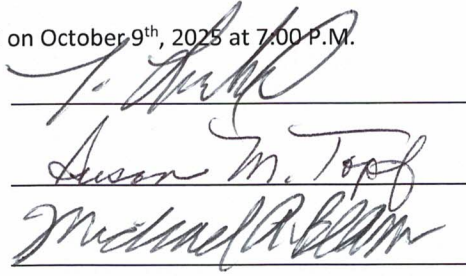 on October 9th, 2025 at 7:00 P.M.
Susan M. Topf
Michael A.